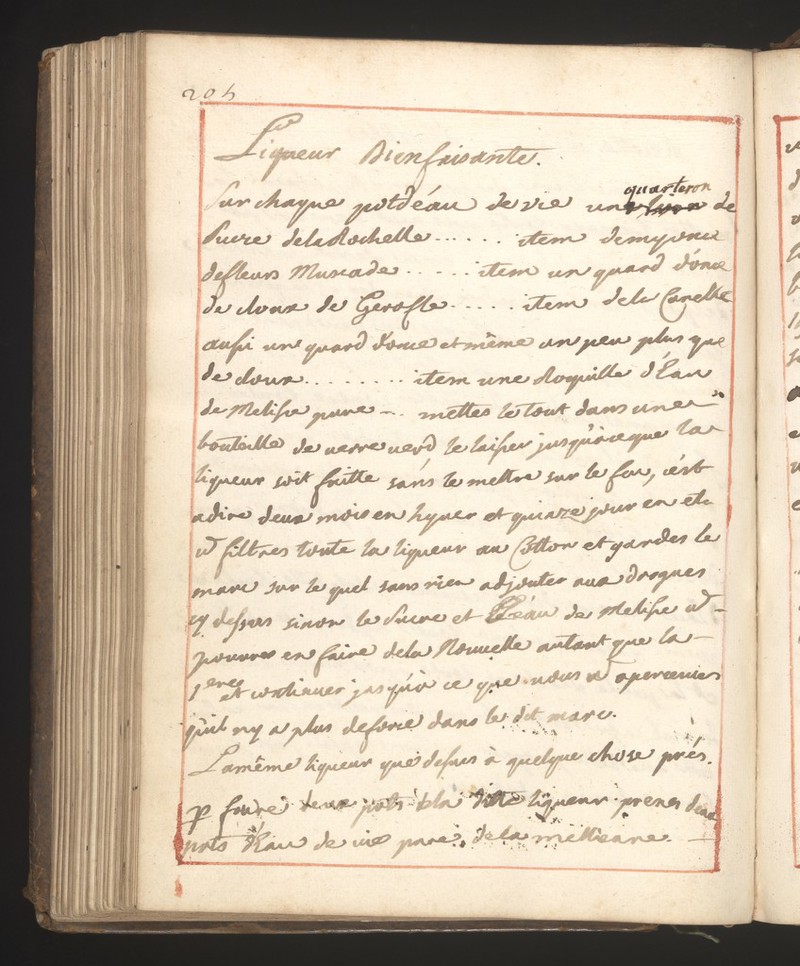 204
Liqueur Bienfaisante.
Sur chaque pot d'eau de vie un quarteron de
Sucre de la Rochelle ...... item demy once
de fleurs Muscade ..... item un quard d'once
de cloux de Gerofle ..... item dela Canelle
aussi un quard d'once et même un peu plus que
de cloux ........ item une Roquille d'Eau
de Melisse pure ... mettes le tout dans une
bouteille de verre verd le laisser jusqu'àceque la
liqueur soit faitte sans le mettre sur le feu, c'est
adire deux mois en hyver et quinze jour en eté
filtres toute la liqueur au Cotton et gardes le
marc sur le quel sans rien adjouter aux drogues
cy dessus sinon le Sucre et L'éau de Melisse
pouves en faire dela Nouvelle autant que la
1ere et continuer jusqu'à ce que vous apercevies
qu'il ny a plus deforce dans le dit marc.
La même liqueur que dessus à quelque chose prés.
p faire deux pots de la ditte liqueur prenes deux
pots d'Eau de vie de la meilleure.